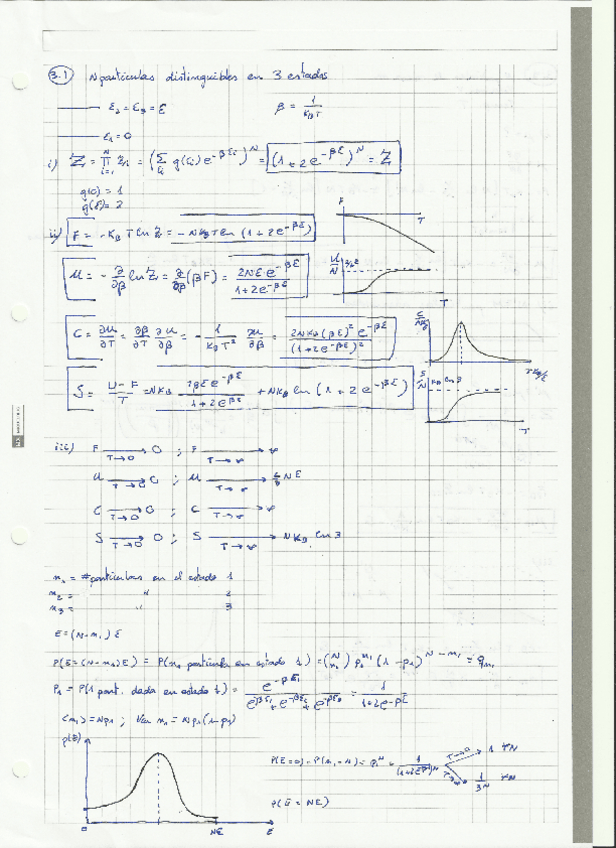 3.1 N partículas distinguibles en 3 estados
ε₂ = ε₃ = ε
β = 1/(K_B T)
ε₁ = 0
i) Z = ∏_{i=1}^{N} z_i = (∑_{ε_i} g(ε_i) e^{-βε_i})^N = (1 + 2e^{-βε})^N = Z
g(0) = 1
g(ε) = 2
ii) F = -K_B T ln Z = -NK_B T ln (1 + 2e^{-βε})
F
T
U = -∂/∂β ln Z = ∂/∂β (βF) = 2Nε·e^{-βε} / (1 + 2e^{-βε})
U/N
T
C = ∂U/∂T = ∂β/∂T ∂U/∂β = -1/(K_B T²) ∂U/∂β = 2NK_B(βε)² e^{-βε} / (1 + 2e^{-βε})²
C/NK_B
TK_B/ε
S = (U - F)/T = NK_B 2βε e^{-βε} / (1 + 2e^{-βε}) + NK_B ln (1 + 2e^{-βε})
S/N K_B ln 3
T
iii) F →(T→0) 0 ; F →(T→∞) ∞
U →(T→0) 0 ; U →(T→∞) Nε
C →(T→0) 0 ; C →(T→∞)
S →(T→0) 0 ; S →(T→∞) NK_B ln 3
n₁ = #partículas en el estado 1
n₂ = " 2
n₃ = " 3
E = (N - n₁) ε
P(E = (N - n₁) ε) = P(n₁ partículas en estado 1) = (N n₁) p₁^{n₁} (1 - p₁)^{N - n₁} = q_{n₁}
P₁ = P(1 part. dada en estado 1) = e^{-βε₁} / (e^{-βε₁} + e^{-βε₂} + e^{-βε₃}) = 1 / (1 + 2e^{-βε})
⟨n₁⟩ = Np₁ ; Var n₁ = Np₁(1 - p₁)
p(E)
P(E = 0) = P(n₁ = N) = p₁^N = 1/(1 + 2e^{-βε})^N
T→0 1 ∀N
T→∞ 1/3^N ∀N
P(E = NE)
0 NE E